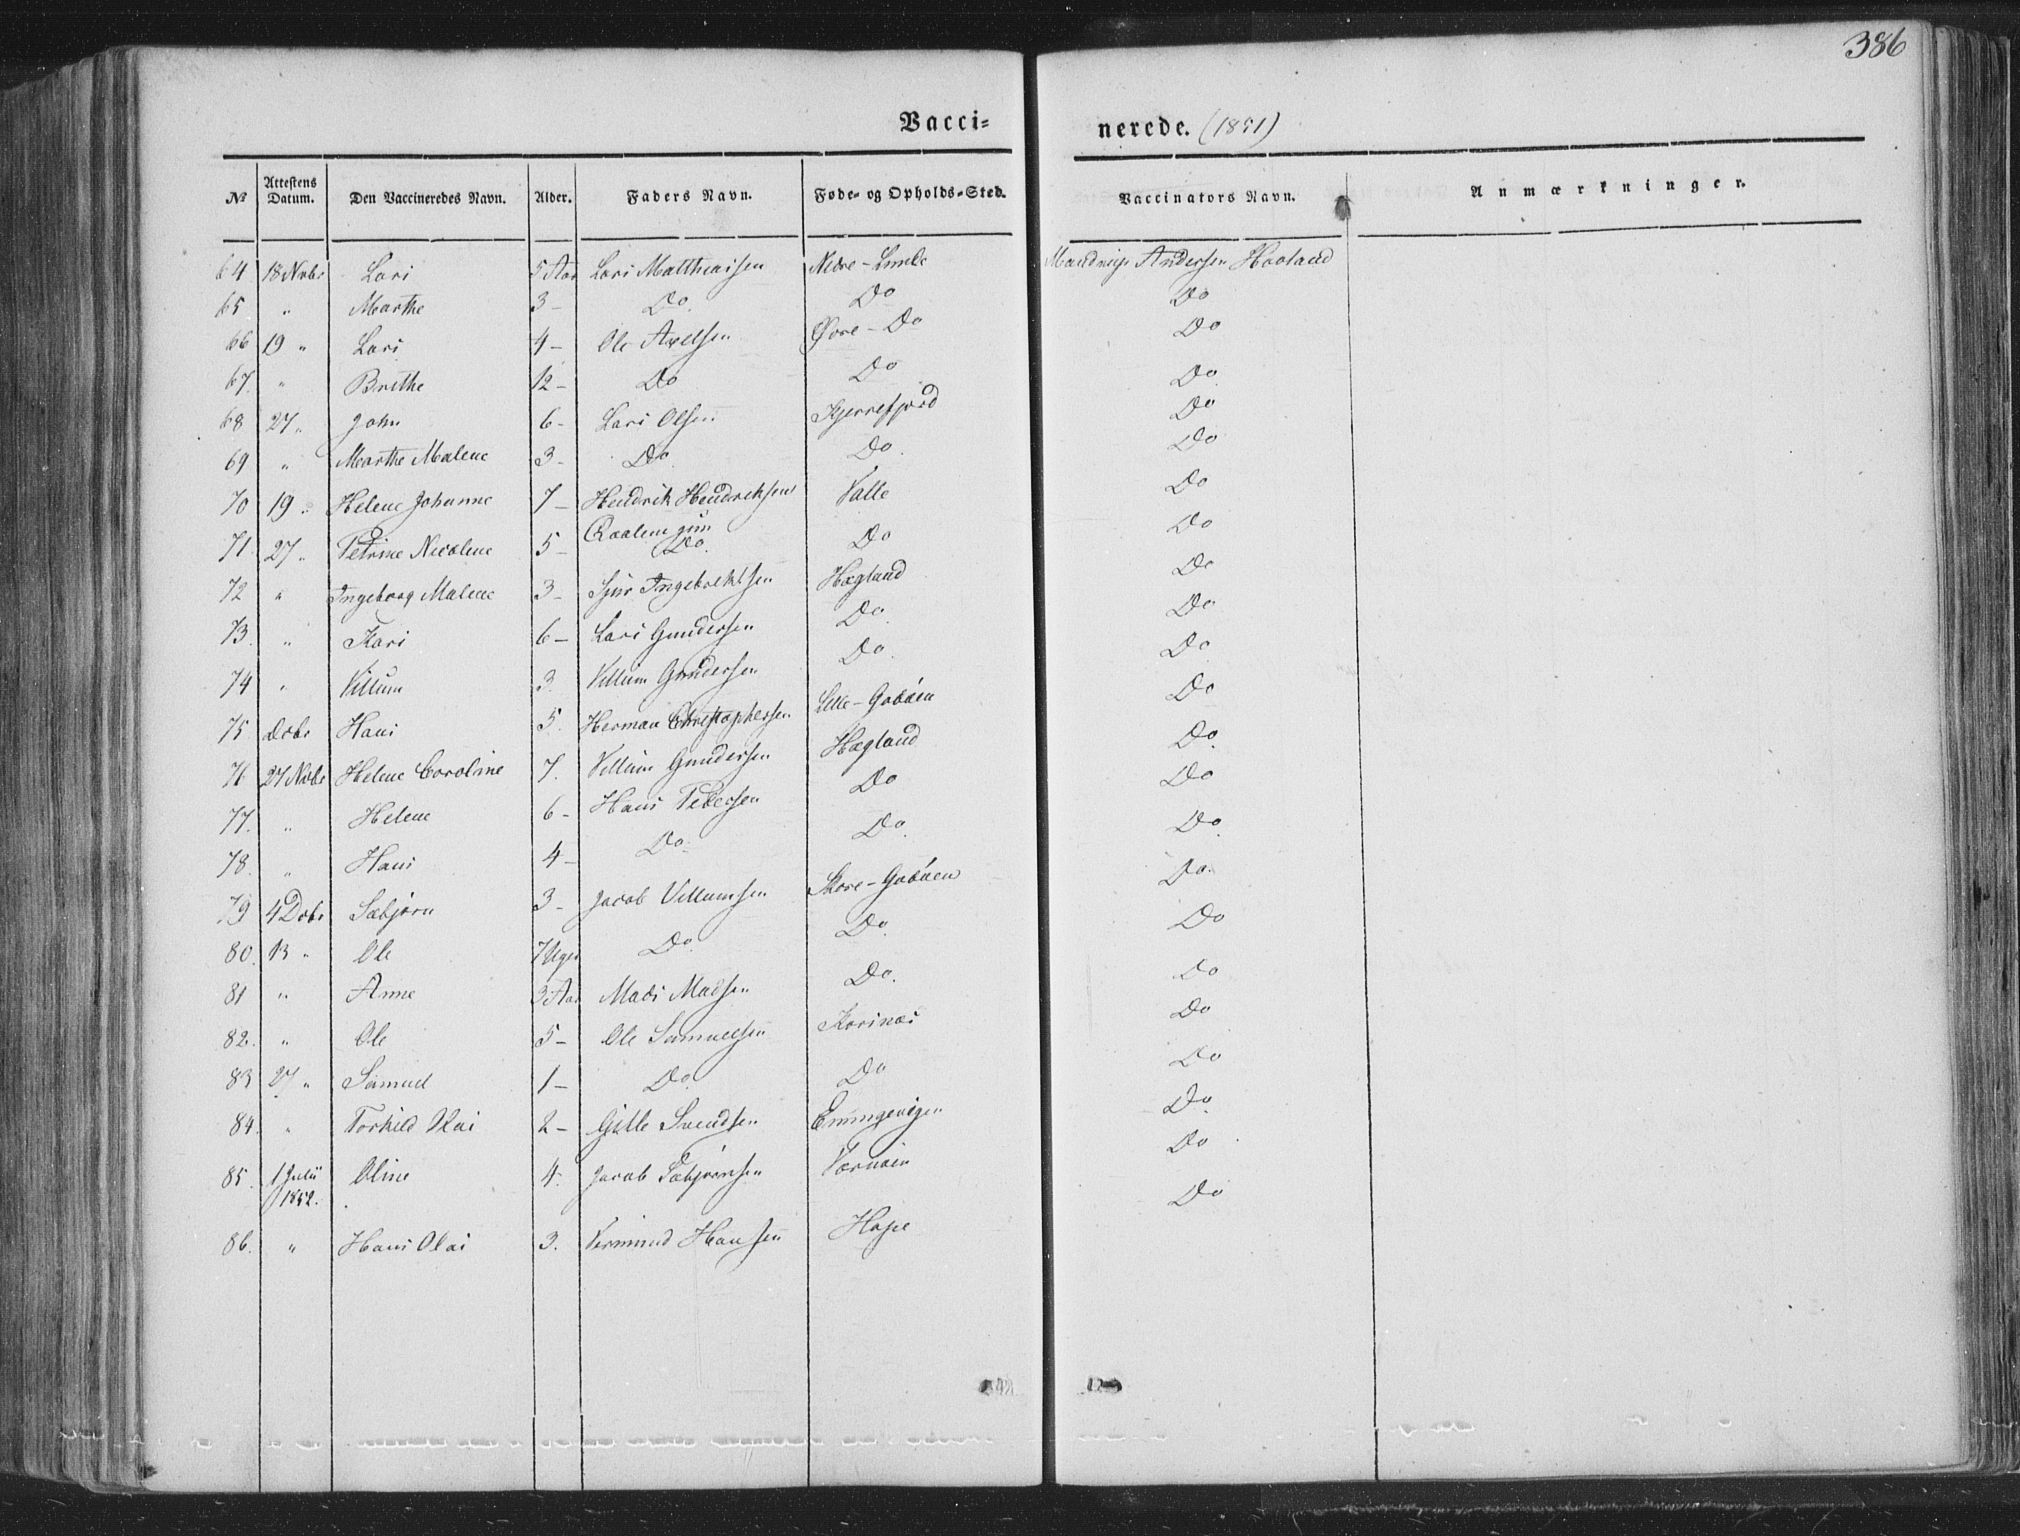 386
Vacci- nerede. (1851)
No Attestens Datum. Den Vaccineredes Navn. Alder. Faders Navn. Føde- og Opholds-Sted. Vaccinators Navn. Anmærkninger.
64 18 Novbr Lars 5 Aar Lars Matthiasen Nedre- Andersen Haaland
65 " Marthe 3 - Do. Do Do
66 19 " Lars 4 - Ole Axelsen Øvre - Do Do
67. " Brithe 12 - Do Do Do.
68 27 " John 6 - Lars Olsen Kjerrefjord Do
69 " Marthe Malene 3 - Do. Do. Do
70 19 " Helene Johanne 7 - Hendrik Hendriksen Valle Do
71 27 " Petrine Nicoline 5 - Do. Do Do
72 " Ingeborg Malene 3 - Sjur Ingebrektsen Hægland Do
73. " Kari 6 - Lars Gundersen Do. Do
74 " Villum 3. Villum Gundersen Do. Do
75 Dcbr Hans 5. Herman Christophersen Lille-Gabøen Do
76 27 Novbr Helene Caroline 7. Villum Gundersen Hægland Do.
77. " Helene 6 - Hans Pedersen Do Do
78. " Hans 4 - Do. Do. Do.
79 4 Dcbr Sæbjørn 3 - Jacob Villumsen Store-Gabøen Do.
80. 13 " Ole 7 Uger Do. Do. Do
81 " Anne 3 Aar Mads Madsen Do. Do
82. " Ole 5 - Ole Samuelsen Korsnæs Do
83 27 " Samuel 1 - Do. Do Do
84. " Torkild Kai 2 - Gitle Svendsen Do.
85. 1 Julii 1852. Oline 4. Jacob Sæbjørnsen Værnøen Do
86. " Hans Olai 3. Vermund Hansen Hope Do